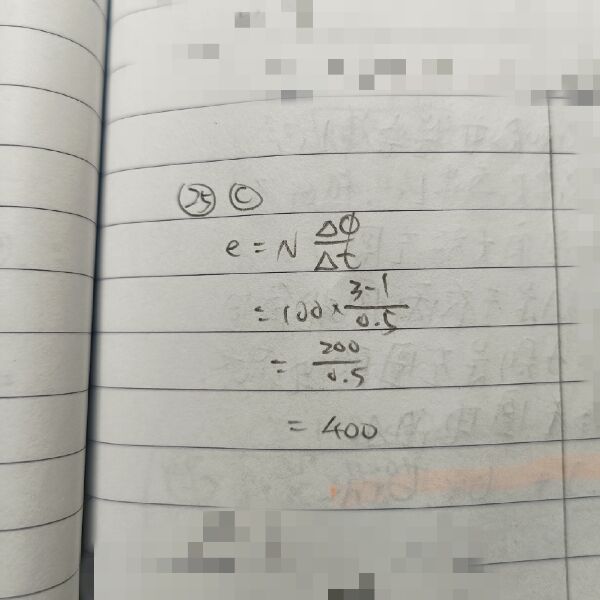 ㉕ ©
e = N ΔΦ/Δt
= 100 × 3-1/0.5
= 200/0.5
= 400